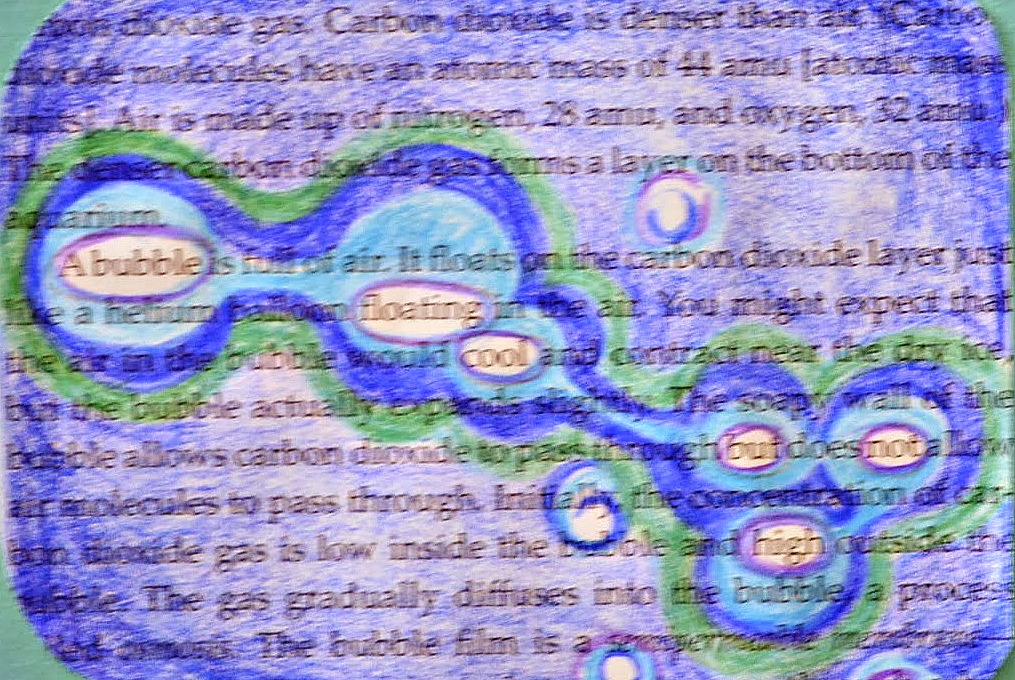 dioxide gas. Carbon dioxide is denser than air. (Carbo
dioxide molecules have an atomic mass of 44 amu [atomic
Air is made up of nitrogen, 28 amu, and oxygen, 32 amu.)
The denser carbon dioxide gas forms a layer on the bottom of the
aquarium.
A bubble is full of air. It floats on the carbon dioxide layer just
like a helium balloon floating in the air. You might expect that
the air in the bubble would cool and contract near the dry
but the bubble actually expands slightly. The soapy wall of the
bubble allows carbon dioxide to pass through but does not allow
air molecules to pass through. Initially the concentration of car-
bon dioxide gas is low inside the bubble and high outside the
bubble. The gas gradually diffuses into the bubble, a process
osmosis. The bubble film is a semipermeable membrane—